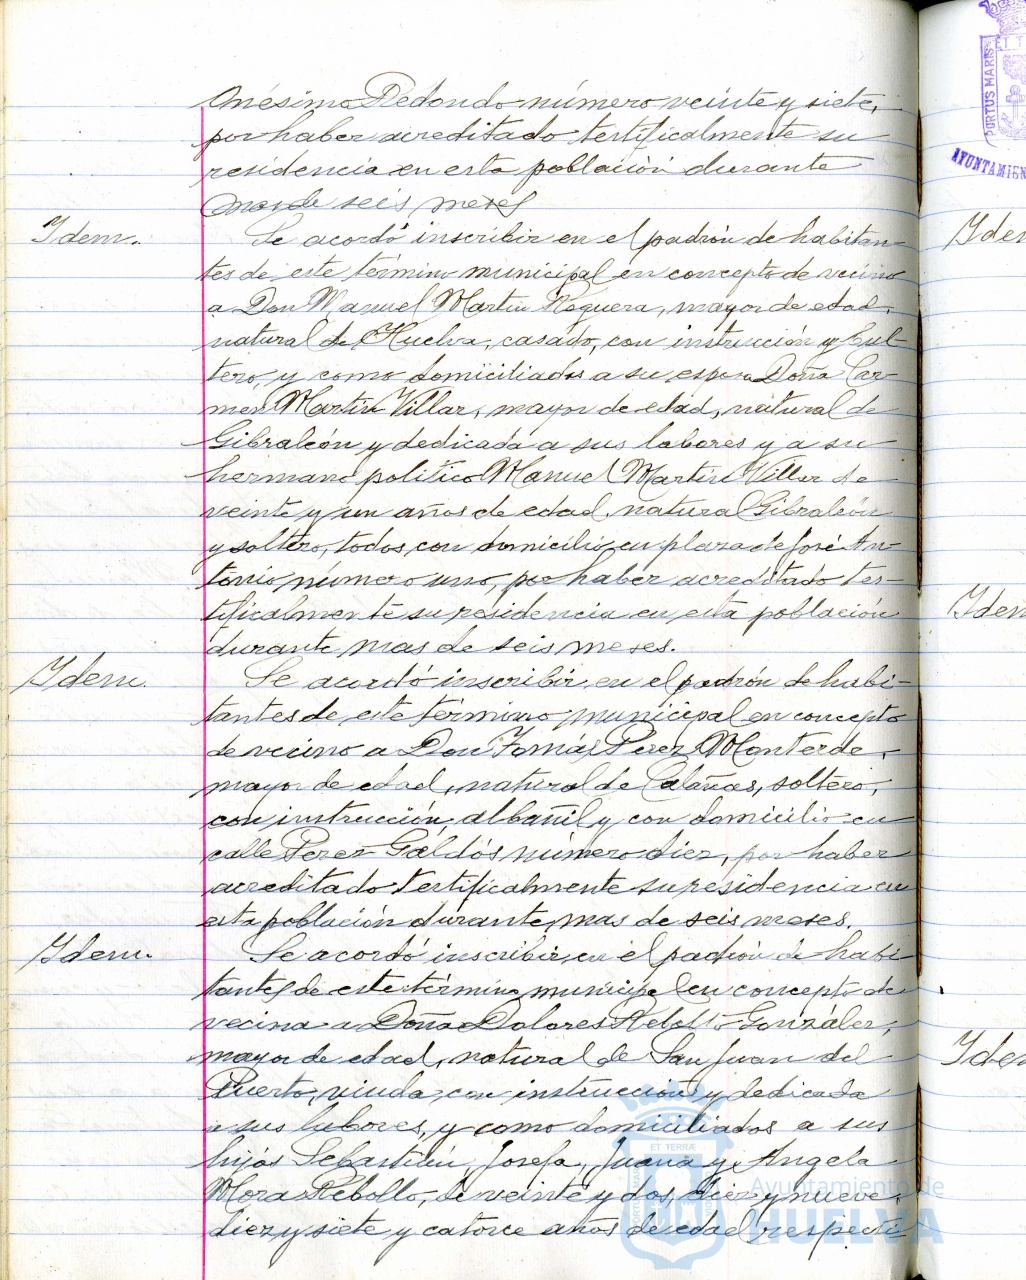 Onésimo Redondo número veinte y siete,
por haber acreditado testificalmente su
residencia en esta población durante
mas de seis meses
Idem.
Se acordó inscribir en el padrón de habitan-
tes de este término municipal en concepto de vecino
a Don Manuel Martin Noguera, mayor de edad,
natural de Huelva, casado, con instrucción y
tero, y como domiciliados a su esposa Doña Car-
men Martin Villar, mayor de edad, natural de
Gibraleón y dedicada a sus labores y a su
hermano politico Manuel Martin Villar de
veinte y un años de edad, natural Gibraleón
y soltero, todos con domicilio en plaza de José An-
tonio número uno, por haber acreditado tes-
tificalmente su residencia en esta población
durante mas de seis meses.
Idem.
Se acordó inscribir en el padrón de habi-
tantes de este término municipal en concepto
de vecino a Don Tomás Perez Monterde,
mayor de edad, natural de Calañas, soltero,
con instrucción, albañil y con domicilio en
calle Perez Galdós número diez, por haber
acreditado testificalmente su residencia en
esta población durante mas de seis meses.
Idem.
Se acordó inscribir en el padrón de habi-
tantes de este término municipal en concepto de
vecina a Doña Dolores Rebollo González,
mayor de edad, natural de San Juan del
Puerto, viuda, con instrucción y dedicada
a sus labores, y como domiciliados a sus
hijos Sebastián, Josefa, Juana y Angela
Mora Rebollo, de veinte y dos, diez y nueve,
diez y siete y catorce años de edad respecti
Ayuntamiento de
HUELVA
ET TERRÆ
PORTUS MARIS
ET T
AYUNTAMIEN
Iden
Iden
Iden